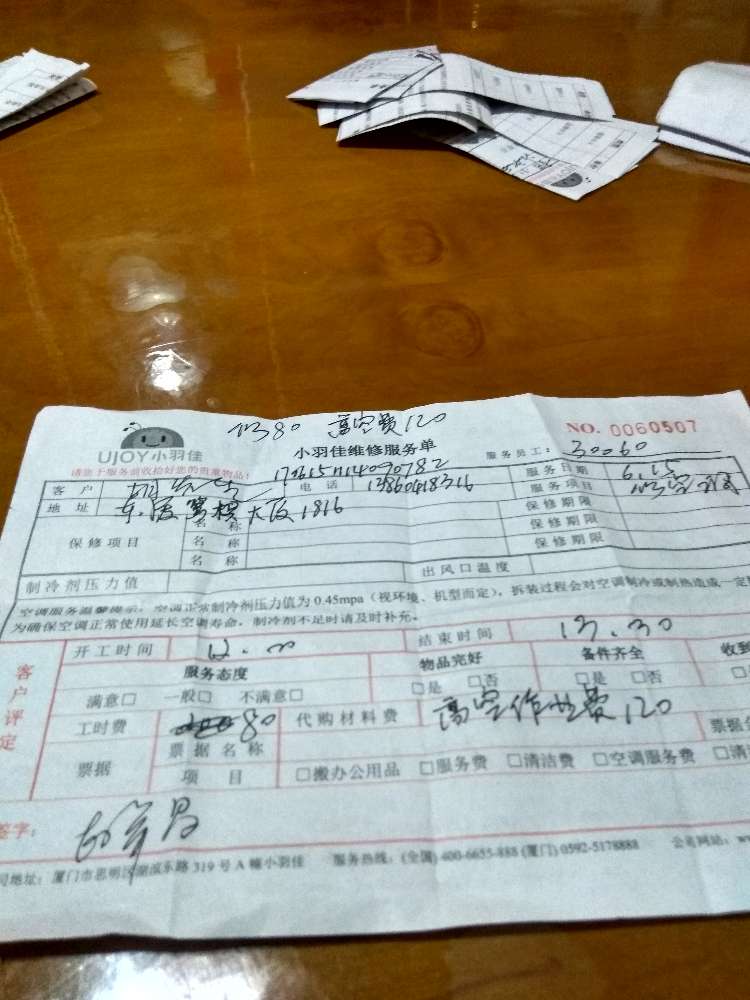 修80 高空费120
UJOY小羽佳
小羽佳维修服务单
NO. 0060507
请您于服务前收拾好您的贵重物品:
服务员工: 30060
客 户 胡先生 电 话 13860418316 服务日期 6.15
地 址 东渡 大厦1816 服务项目 修空调
保修项目 名 称 保修期限
名 称 保修期限
名 称 保修期限
制冷剂压力值 出风口温度
空调服务温馨提示: 空调正常制冷剂压力值为 0.45mpa(视环境、机型而定), 拆装过程会对空调制冷或制热造成一定
为确保空调正常使用延长空调寿命, 制冷剂不足时请及时补充。
客户评定
开工时间 12.00 结束时间 13.30
服务态度 物品完好 备件齐全 收到
满意□ 一般□ 不满意□ □是 □否 □是 □否
工时费 80 代购材料费 高空作业费120
票据 票据名称
项 目 □搬办公用品 □服务费 □清洁费 □空调服务费 □清
签字:
司地址: 厦门市思明区湖滨东路 319 号 A 幢小羽佳 服务热线: (全国) 400-6655-888 (厦门) 0592-5178888 公司网站: